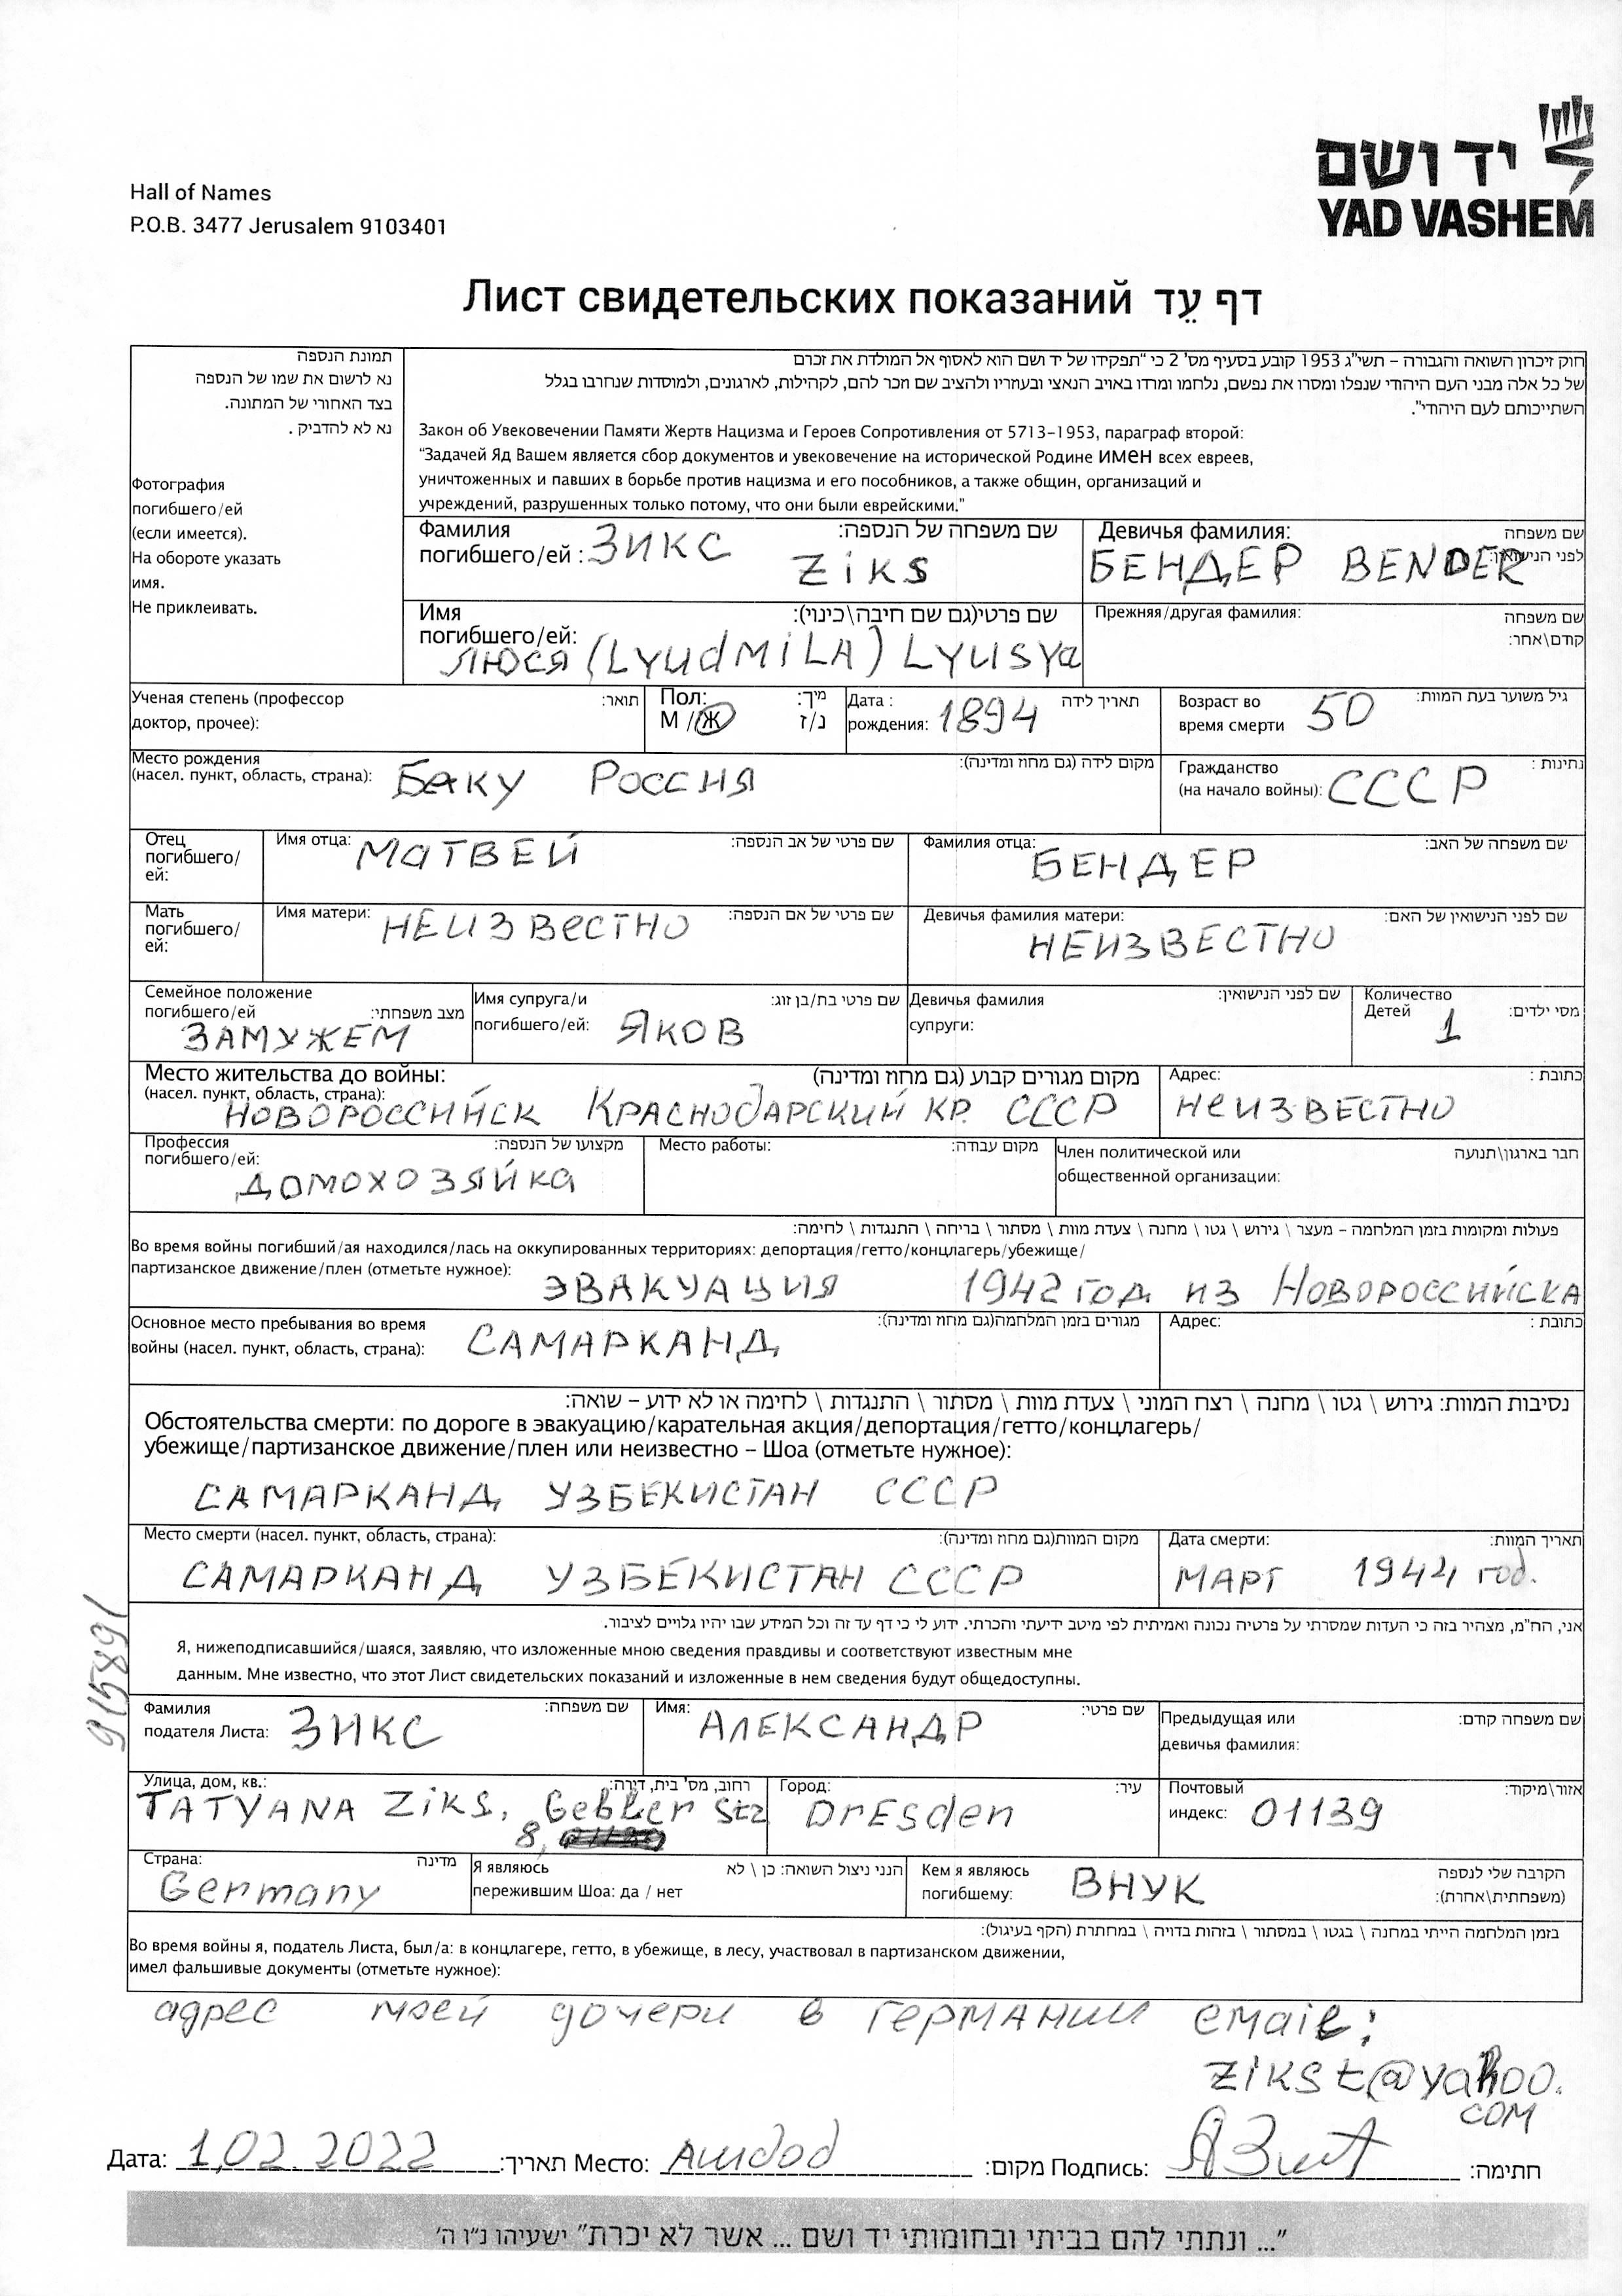 יד ושם
YAD VASHEM
Hall of Names
P.O.B. 3477 Jerusalem 9103401
Лист свидетельских показаний דף עֵד
תמונת הנספה
נא לרשום את שמו של הנספה
בצד האחורי של התמונה.
נא לא להדביק.
Фотография
погибшего/ей
(если имеется).
На обороте указать
имя.
Не приклеивать.
חוק זיכרון השואה והגבורה – תשי"ג 1953 קובע בסעיף מס' 2 כי "תפקידו של יד ושם הוא לאסוף אל המולדת את זכרם
של כל אלה מבני העם היהודי שנפלו ומסרו את נפשם, נלחמו ומרדו באויב הנאצי ובעוזריו ולהציב שם וזכר להם, לקהילות, לארגונים, ולמוסדות שנחרבו בגלל
השתייכותם לעם היהודי".
Закон об Увековечении Памяти Жертв Нацизма и Героев Сопротивления от 5713-1953, параграф второй:
"Задачей Яд Вашем является сбор документов и увековечение на исторической Родине имен всех евреев,
уничтоженных и павших в борьбе против нацизма и его пособников, а также общин, организаций и
учреждений, разрушенных только потому, что они были еврейскими."
Фамилия погибшего/ей : ЗИКС שם משפחה של הנספה:
Ziks
Девичья фамилия: שם משפחה לפני הנישואין:
БЕНДЕР BENDER
Имя погибшего/ей: שם פרטי(גם שם חיבה\כינוי):
ЛЮСЯ (LyudMiLA) Lyusya
Прежняя/другая фамилия: שם משפחה קודם\אחר:
Ученая степень (профессор доктор, прочее): תואר:
Пол: М / Ж מין: נ/ז
Дата рождения: 1894 תאריך לידה
Возраст во время смерти 50 גיל משוער בעת המוות:
Место рождения (насел. пункт, область, страна): Баку Россия מקום לידה (גם מחוז ומדינה):
Гражданство (на начало войны): СССР נתינות :
Отец погибшего/ей:
Имя отца: МАТВЕЙ שם פרטי של אב הנספה:
Фамилия отца: БЕНДЕР שם משפחה של האב:
Мать погибшего/ей:
Имя матери: НЕИЗВеСТНО שם פרטי של אם הנספה:
Девичья фамилия матери: НЕИЗВЕСТНО שם לפני הנישואין של האם:
Семейное положение погибшего/ей מצב משפחתי:
ЗАМУЖЕМ
Имя супруга/и погибшего/ей: ЯКОВ שם פרטי בת/בן זוג:
Девичья фамилия супруги: שם לפני הנישואין:
Количество Детей 1 מסי ילדים:
Место жительства до войны: מקום מגורים קבוע (גם מחוז ומדינה)
(насел. пункт, область, страна):
НОВОРОССИЙСК КРАСНОДАРСКИЙ КР. СССР
Адрес: НеИЗВЕСТНО כתובת :
Профессия погибшего/ей: מקצועו של הנספה:
ДОМОХОЗЯЙКА
Место работы: מקום עבודה:
Член политической или общественной организации: חבר בארגון\תנועה
פעולות ומקומות בזמן המלחמה – מעצר \ גירוש \ גטו \ מחנה \ צעדת מוות \ מסתור \ בריחה \ התנגדות \ לחימה:
Во время войны погибший/ая находился/лась на оккупированных территориях: депортация/гетто/концлагерь/убежище/
партизанское движение/плен (отметьте нужное):
ЭВАКУАЦИЯ 1942 год из НОВОРОССИЙСКА
Основное место пребывания во время войны (насел. пункт, область, страна): САМАРКАНД מגורים בזמן המלחמה(גם מחוז ומדינה):
Адрес: כתובת :
נסיבות המוות: גירוש \ גטו \ מחנה \ רצח המוני \ צעדת מוות \ מסתור \ התנגדות \ לחימה או לא ידוע – שואה:
Обстоятельства смерти: по дороге в эвакуацию/карательная акция/депортация/гетто/концлагерь/
убежище/партизанское движение/плен или неизвестно – Шоа (отметьте нужное):
САМАРКАНД УЗБЕКИСТАН СССР
Место смерти (насел. пункт, область, страна): מקום המוות(גם מחוז ומדינה):
САМАРКАНД УЗБЕКИСТАН СССР
Дата смерти: תאריך המוות:
МАРТ 1944 год.
9115891
אני, הח"מ, מצהיר בזה כי העדות שמסרתי על פרטיה נכונה ואמיתית לפי מיטב ידיעתי והכרתי. ידוע לי כי דף עד זה וכל המידע שבו יהיו גלויים לציבור.
Я, нижеподписавшийся/шаяся, заявляю, что изложенные мною сведения правдивы и соответствуют известным мне
данным. Мне известно, что этот Лист свидетельских показаний и изложенные в нем сведения будут общедоступны.
Фамилия подателя Листа: ЗИКС שם משפחה:
Имя: АЛЕКСАНДР שם פרטי:
Предыдущая или девичья фамилия: שם משפחה קודם:
Улица, дом, кв.: רחוב, מס' בית, דירה:
TATYANA Ziks, Gebler Str
8,
Город: DrEsden עיר:
Почтовый индекс: 01139 אזור\מיקוד:
Страна: Germany מדינה
Я являюсь пережившим Шоа: да / нет הנני ניצול השואה: כן \ לא
Кем я являюсь погибшему: ВНУК הקרבה שלי לנספה (משפחתית\אחרת):
בזמן המלחמה הייתי במחנה \ בגטו \ במסתור \ בזהות בדויה \ במחתרת (הקף בעיגול):
Во время войны я, податель Листа, был/а: в концлагере, гетто, в убежище, в лесу, участвовал в партизанском движении,
имел фальшивые документы (отметьте нужное):
адрес моей дочери в ГЕРМАНИИ email:
zikst@yahoo.
COM
Дата: 1.02.2022 תאריך: Место: Ашdod מקום: Подпись: חתימה:
"... ונתתי להם בביתי ובחומותי יד ושם ... אשר לא יכרת" ישעיהו נ"ו ה'